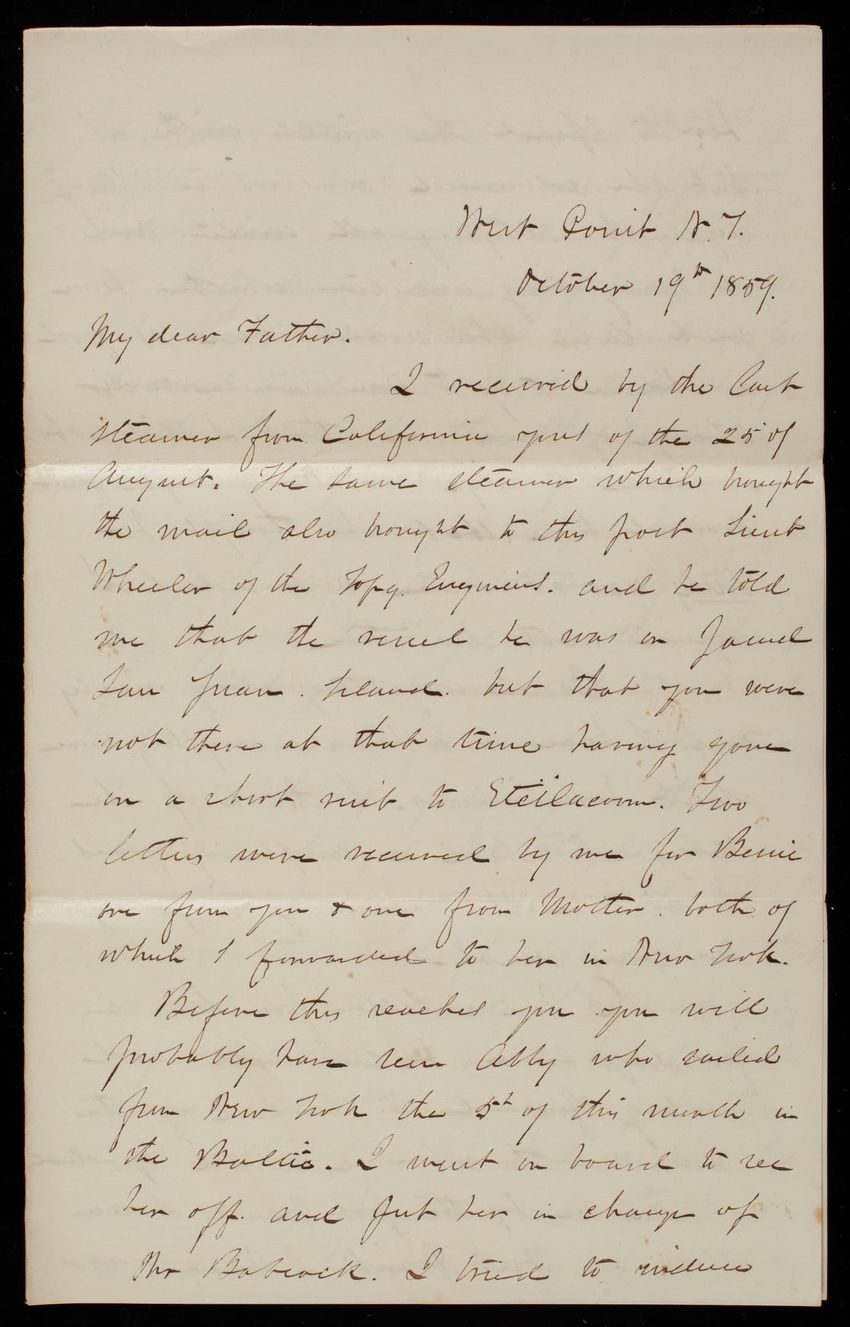 West Point N.Y.
October 19th 1859.
My dear Father.
I received by the last
steamer from California yours of the 25 of
August. The same steamer which brought
the mail also brought to this post Lieut
Wheeler of the Topg. Engineers. and he told
me that the vessel he was on passed
San Juan. Island. but that you were
not there at that time having gone
on a short visit to Steilacoom. Two
letters were received by me for Bessie
one from you & one from Mother. both of
which I forwarded to her in New York.
Before this reaches you you will
probably have seen Abby who sailed
from New York the 5th of this month in
the Baltic. I went on board to see
her off. and put her in charge of
Mr Babcock. I tried to induce